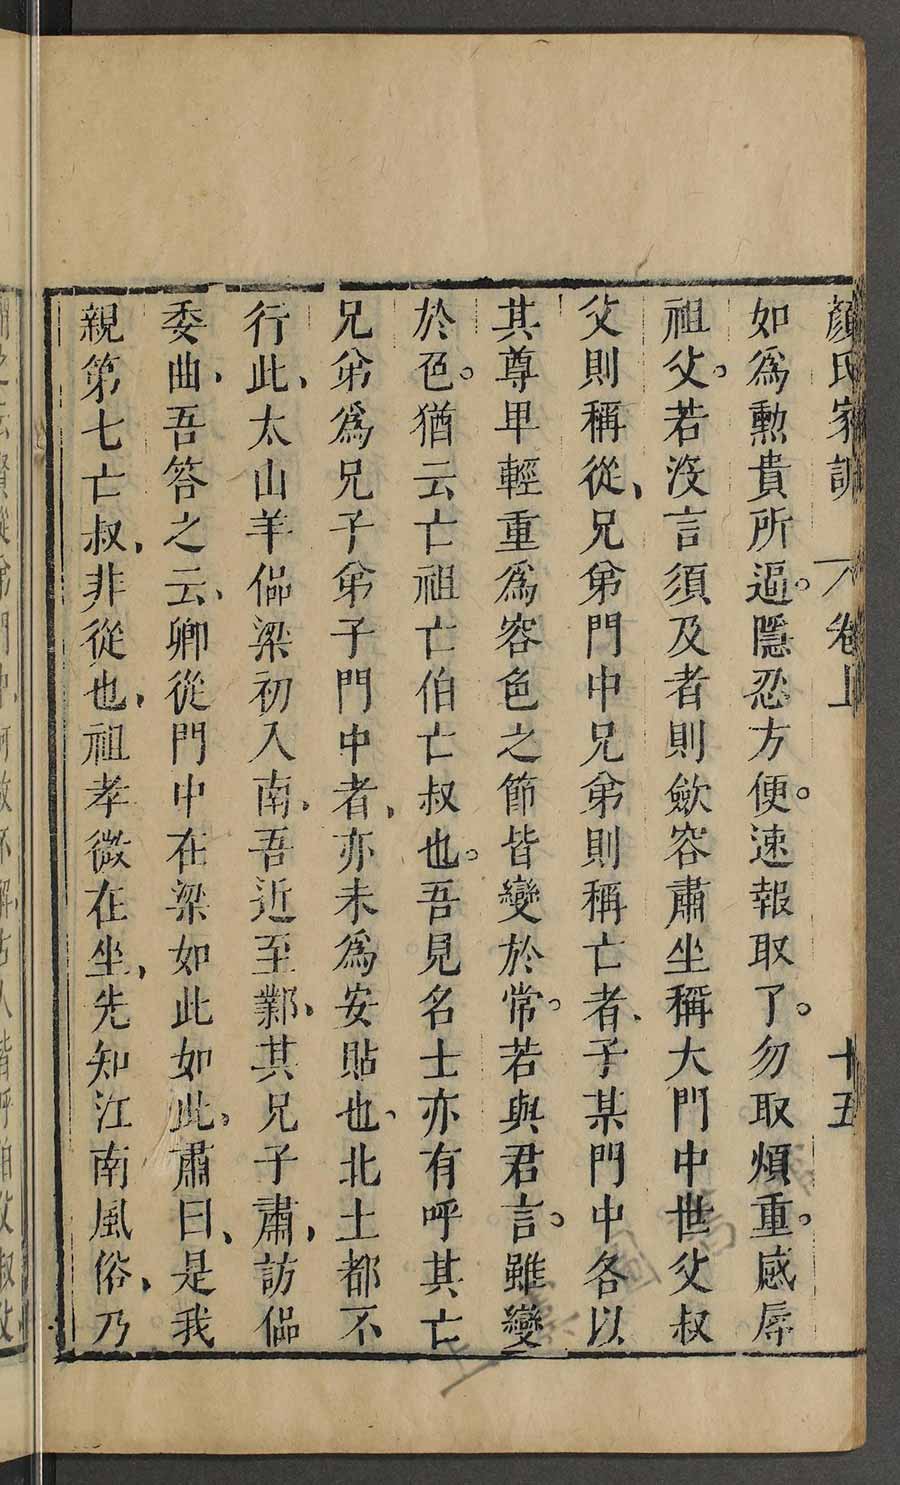 顏氏家訓 卷上 十五
如爲勲貴所逼。隱忍方便。速報取了。勿取煩重。感辱
祖父。若沒言須及者則歛容肅坐稱大門中世父叔
父則稱從、兄弟門中兄弟則稱亡者、子某門中各以
其尊卑輕重爲容色之節皆變於常。若與君言。雖變
於色。猶云亡祖亡伯亡叔也。吾見名士亦有呼其亡
兄弟爲兄子弟子門中者、亦未爲安貼也、北土都不
行此、太山羊偘梁初入南、吾近至鄴、其兄子肅、訪偘
委曲、吾答之云、卿從門中在梁如此如此、肅曰、是我
親第七亡叔、非從也、祖孝徵在坐、先知江南風俗、乃